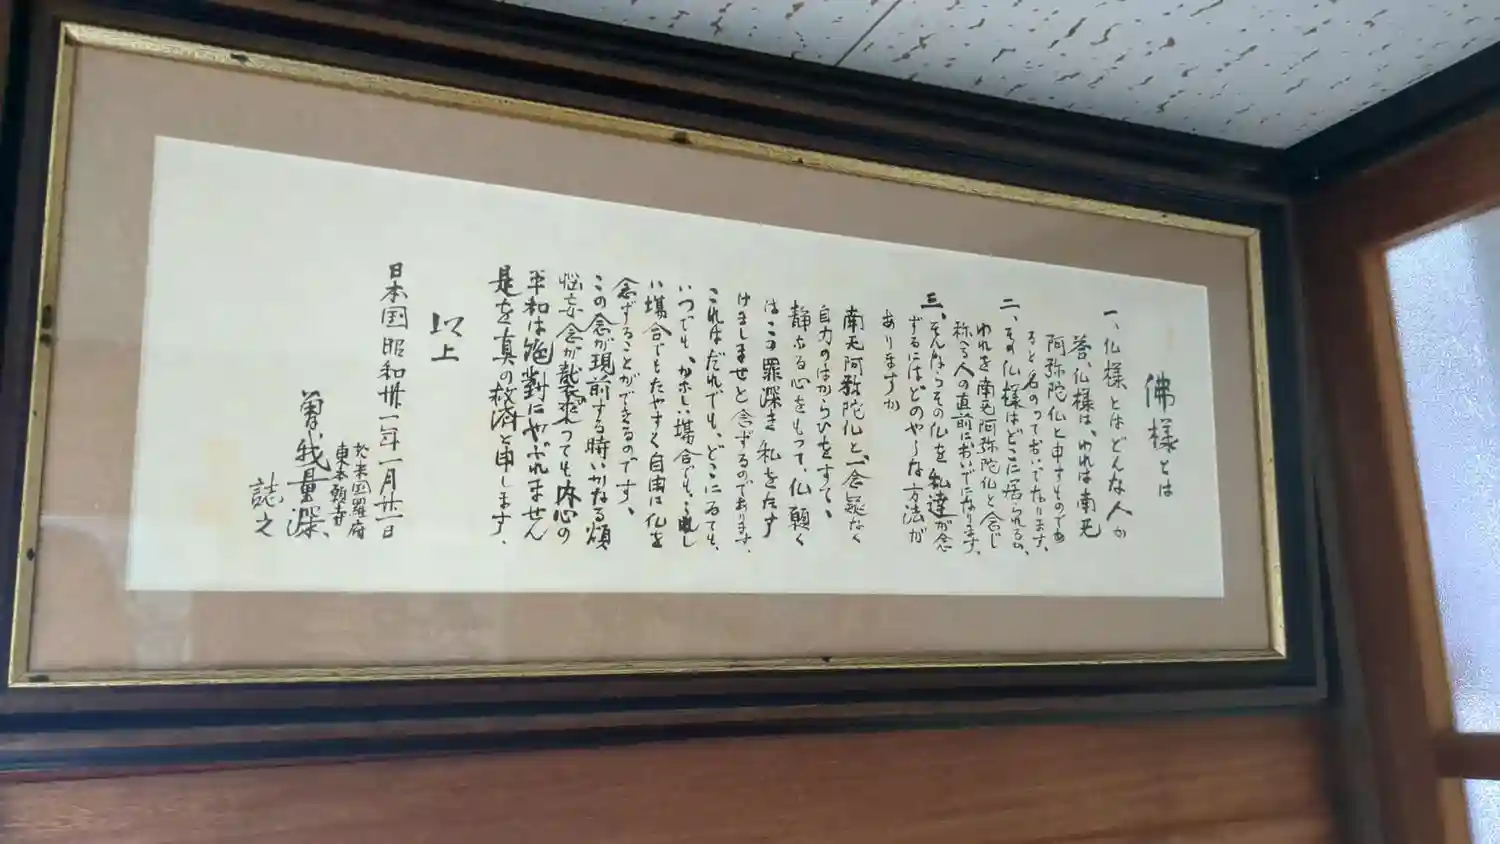 佛様とは
一、仏様とはどんな人か
答、仏様は、われは南无
阿弥陀仏と申すものであ
ると名のっておいでなります、
二、その仏様はどこに居られるか、
われを南无阿弥陀仏と念じ
称へる人の直前においでになります、
三、そんならその仏を私達が念
ずるには、どのやうな方法が
ありますか
南无阿弥陀仏と、一念疑なく
自力のはからひをすて、
静かなる心をもって、仏願く
はこの罪深き私をたす
けましませと念ずるのであります、
これはだれでも、どこに居ても、
いつでも、かなしい場合でも、うれし
い場合でもたやすく自由に仏を
念ずることができるのです、
この念が現前する時いかなる煩
悩妄念が襲来っても内心の
平和は絶対にやぶれません
是を真の救済と申します、
以上
日本国昭和卅一年一月廿一日
於米国羅府
東本願寺
曽我量深、
誌之